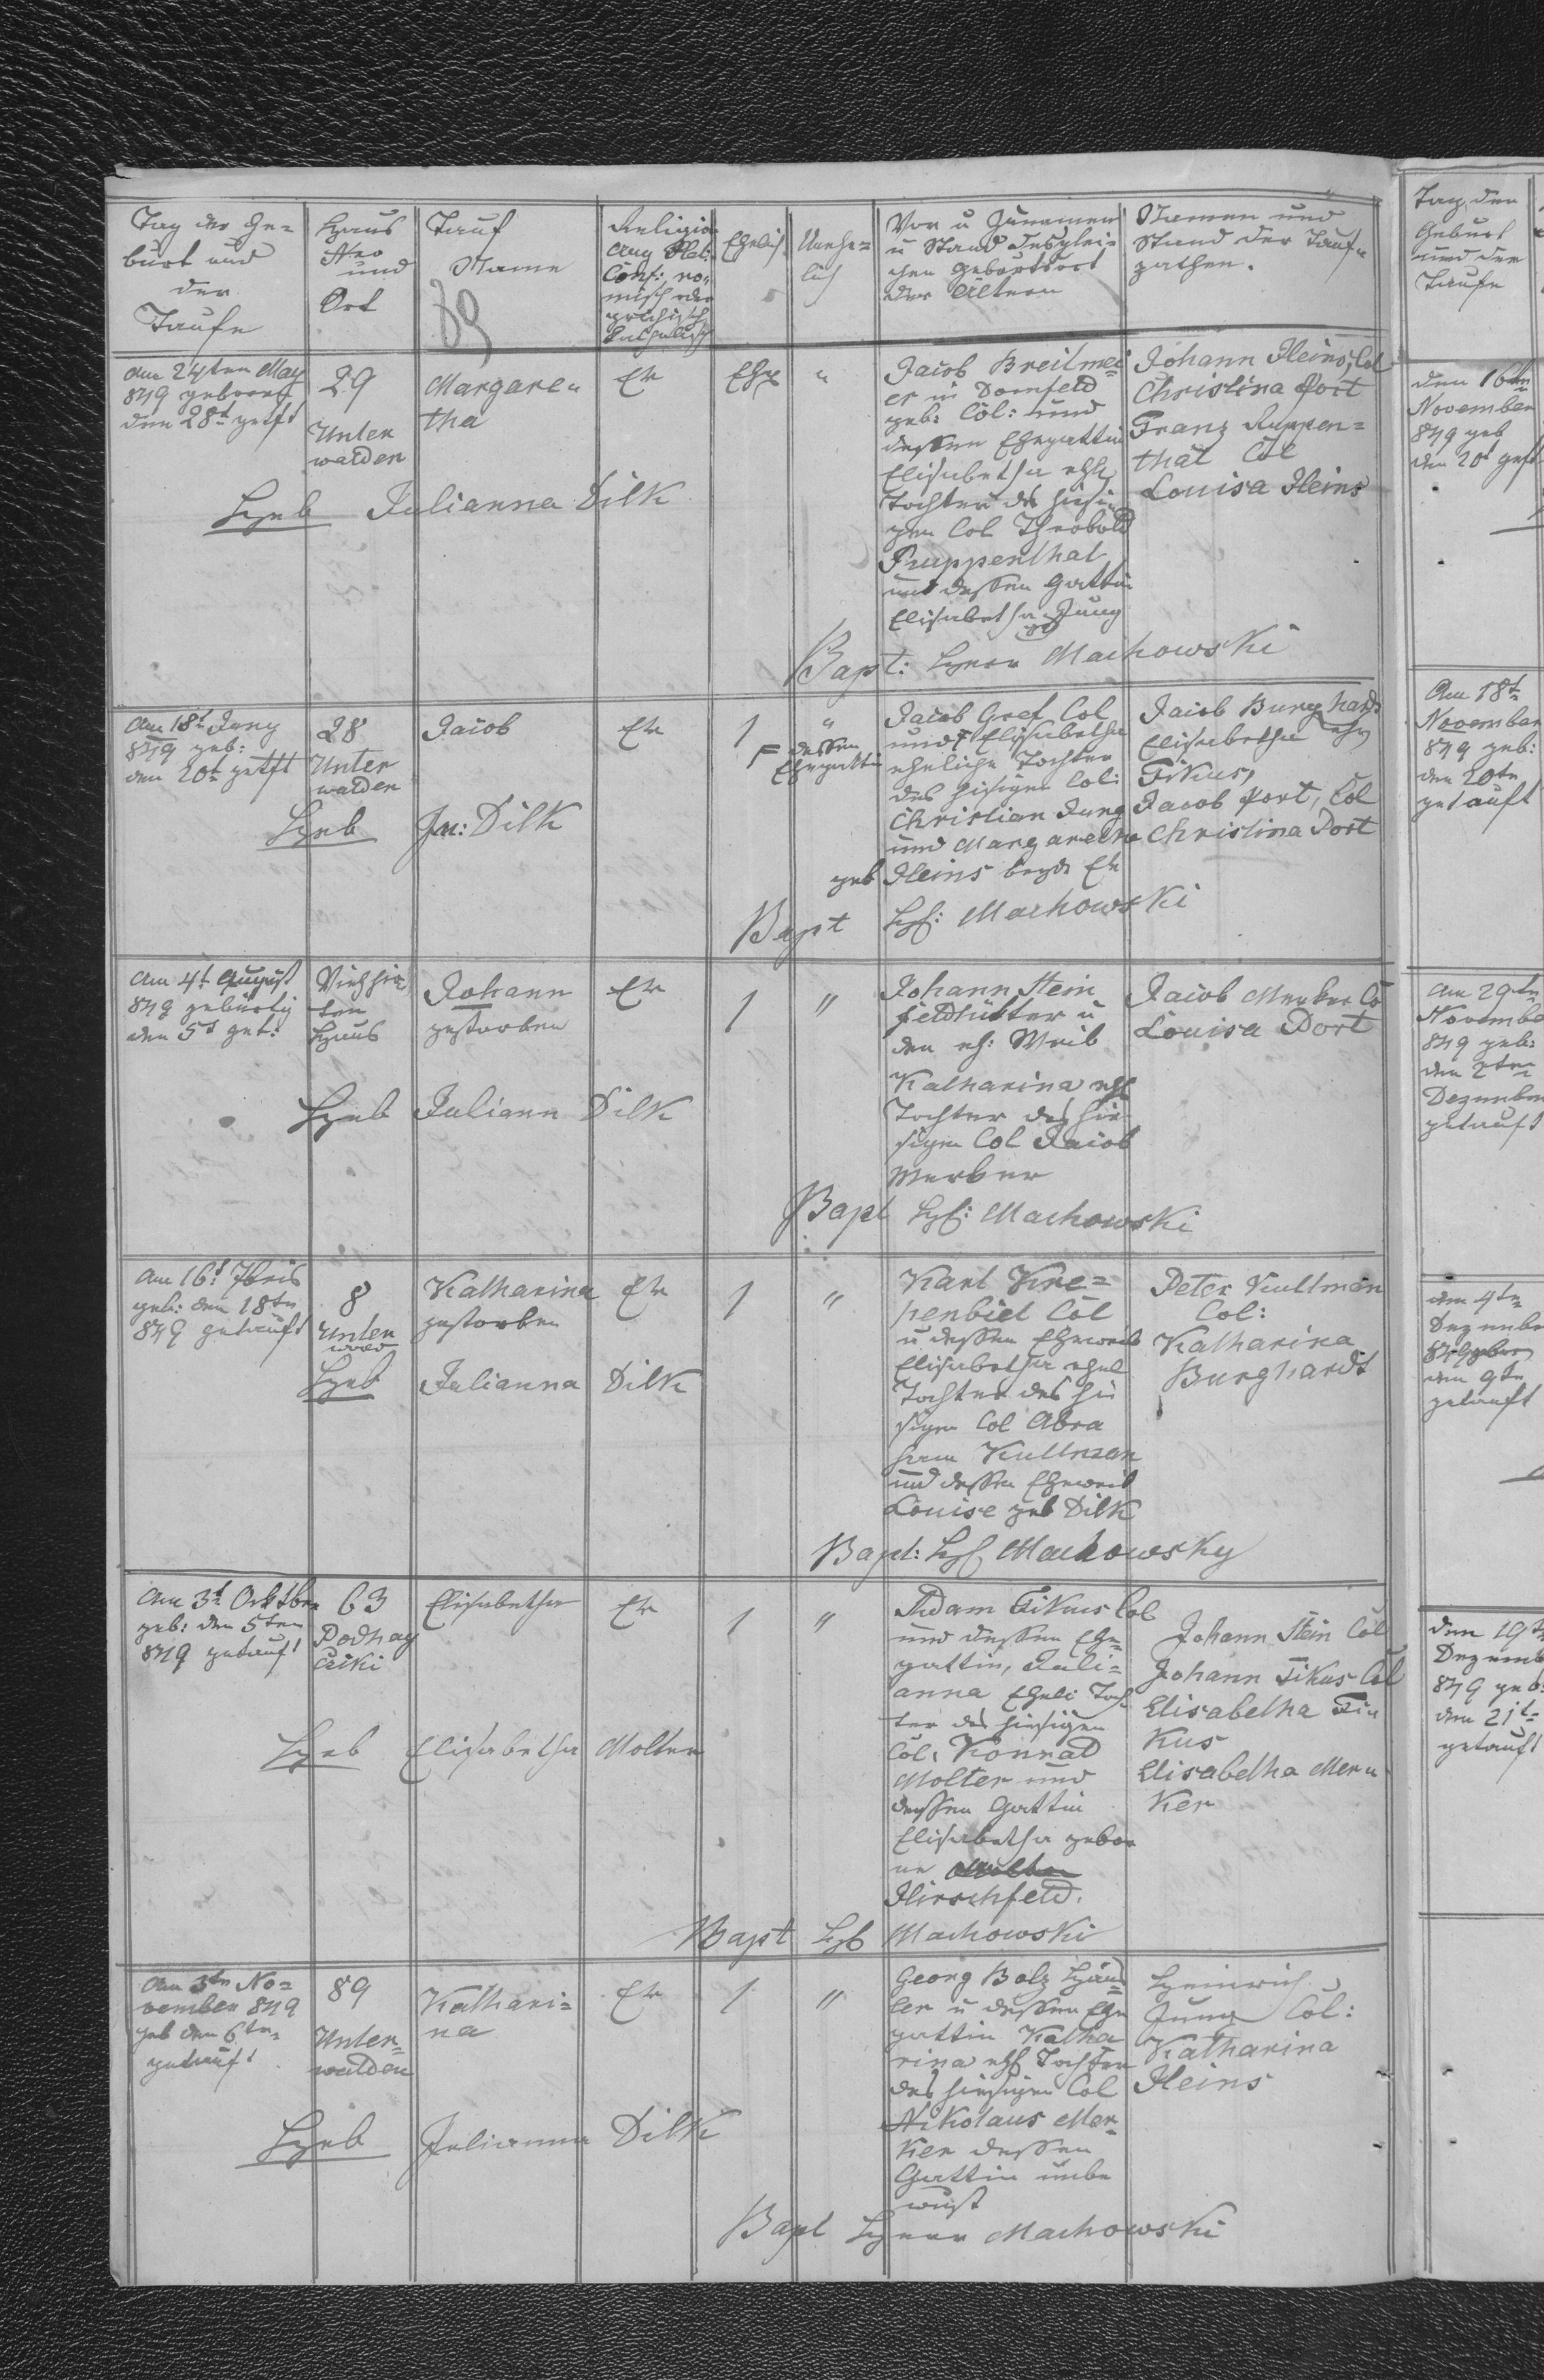 Tag der Ge-
burt und
der
Taufe
Haus
Nro
und
Ort
Tauf
Name
Religion
Aug
Conf: rö-
misch oder
grichisch
Katholisch
Ehelich
Unehe-
lich
Vor u Zunamen
u Stand desglei-
chen Geburtsort
der Ältern
Namen und
Stand der Tauf-
pathen.
Am 24ten May
849 geboren
den 28t getft
29
Unter
walden
Margare-
tha
Ev
Ehe
"
Jacob Breitmei
er in Dornfeld
geb: Col: und
dessen Ehegattin
Elisabetha ehl
Tochter des hiesi
gen Col Theobold
Ruppenthal
und dessen Gattin
Elisabetha Jung
Johann Heins, Col
Christina Port
Franz Ruppen=
thal Col
Louisa Heins
Heb Julianna Dilk
Bapt: Herr Machowski
Am 18t Juny
849 geb:
den 20t getft
28
Unter
walden
Jacob
Ev
1
"
F dessen
Ehegattin
Jacob Gref Col
und F Elisabetha
eheliche Tochter
des hisigen Col:
Christian Jung
und Margaretha
geb Heins beyde Ev
Jacob Burghardt
Elisabetha
Fikus,
Jacob Port, Col
Christina Port
Heb Ju: Dilk
Bapt H: Machowski
Am 4t August
849 gebürtig
den 5t get:
Viehhir
ten
Haus
Johann
gestorben
Ev
1
"
Johann Stein
Feldhütter u
den eh: Weib
Katharina ehl
Tochter des hie
sigen Col Jacob
Merker
Jacob Merker Co
Louisa Port
Heb Juliann Dilk
Bapt H: Machowski
Am 16t 7bris
geb: den 18ten
849 getauft
8
Unter
wald
Katharina
gestorben
Ev
1
"
Karl Kre=
penbiel Col
u dessen Eheweib
Elisabetha ehel
Tochter des hie
sigen Col Abra
ham Kullman
und dessen Eheweib
Louise geb Dilk
Peter Kullman
Col:
Katharina
Burghardt
Heb Julianna Dilk
Bapt: H Machowsky
Am 3t Oktber
geb: den 5ten
849 getauft
63
Podhay
cziki
Elisabetha
Ev
1
"
Adam Fikus Col
und dessen Ehe-
gattin, Juli=
anna Eheli Toch
ter des hiesigen
Col. Konrad
Molter und
dessen Gattin
Elisabetha gebor
ne Molter
Hirschfeld.
Johann Stein Col
Johann Fikus Col
Elisabetha Fi-
kus
Elisabetha Mer-
ker
Heb Elisabetha Molter
Bapt H Machowski
Am 3ten No=
vember 849
geb den 6ten
getauft
89
Unter=
walden
Kathari=
na
Ev
1
"
Georg Bolz Häus
ler u dessen Ehe
gattin Katha
rina ehl Tochter
des hiesigen Col
Nikolaus Mer-
ker dessen
Gattin unbe
wust
Heinrich
Jung Col:
Katharina
Heins
Heb Julianna Dilk
Bapt Herr Machowski
Tag der
Geburt
und der
Taufe
Den 16ten
November
849 geb
den 20t getft
Am 18t
November
849 geb:
den 20ten
getauft
Am 29ten
Novembe
849 geb:
den 2ten
Dezember
getauft
den 4ten
Dezembe
849 geboren
den 9ten
getauft
den 19t
Dezemb
849 geb:
den 21t
getauft